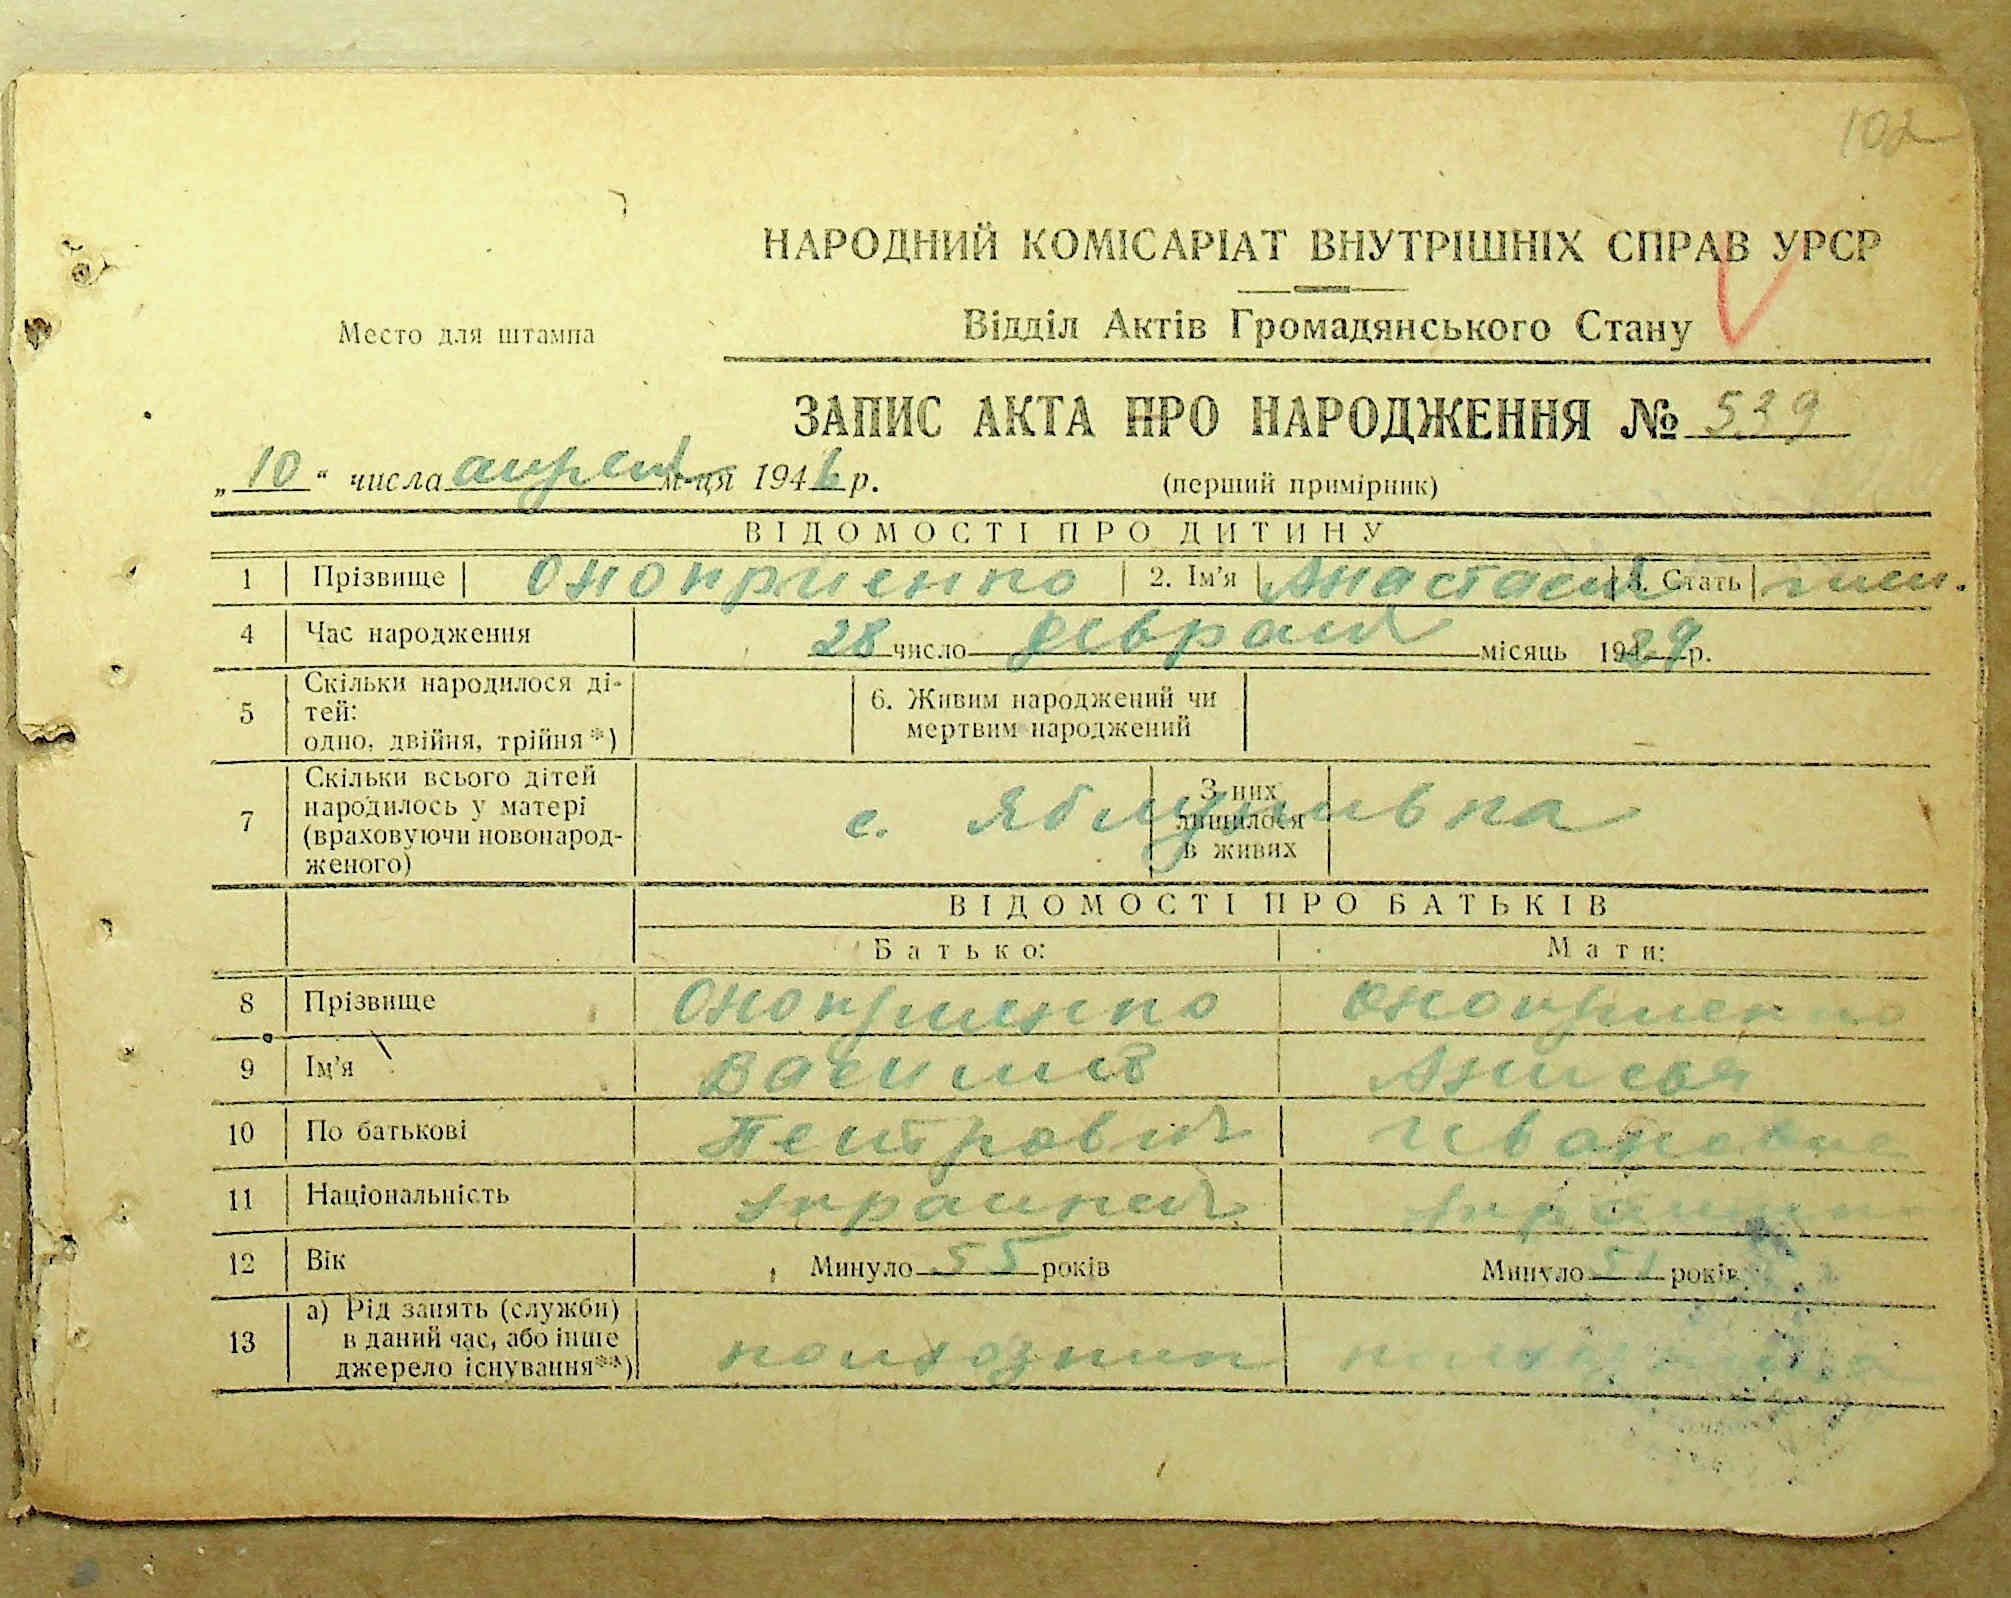 102
НАРОДНИЙ КОМІСАРІАТ ВНУТРІШНІХ СПРАВ УРСР
Место для штампа
Відділ Актів Громадянського Стану
ЗАПИС АКТА ПРО НАРОДЖЕННЯ № 539
„10“ числа апреля м-ця 1946 р. (перший примірник)
ВІДОМОСТІ ПРО ДИТИНУ
1 Прізвище Оноприенко 2. Ім'я Анастасия 3. Стать жен.
4 Час народження 28 число февраля місяць 1929 р.
5 Скільки народилося ді-
тей:
одно, двійня, трійня*)
6. Живим народжений чи
мертвим народжений
7 Скільки всього дітей
народилось у матері
(враховуючи новонарод-
женого)
с. Яблунивка
З них
лишилося
в живих
ВІДОМОСТІ ПРО БАТЬКІВ
Батько: Мати:
8 Прізвище Оноприенко Оноприенко
9 Ім'я Василий Анисья
10 По батькові Петрович Ивановна
11 Національність украинец
12 Вік Минуло 55 років Минуло 51 років
13 а) Рід занять (служби)
в даний час, або інше
джерело існування**)
колхозник колхозница